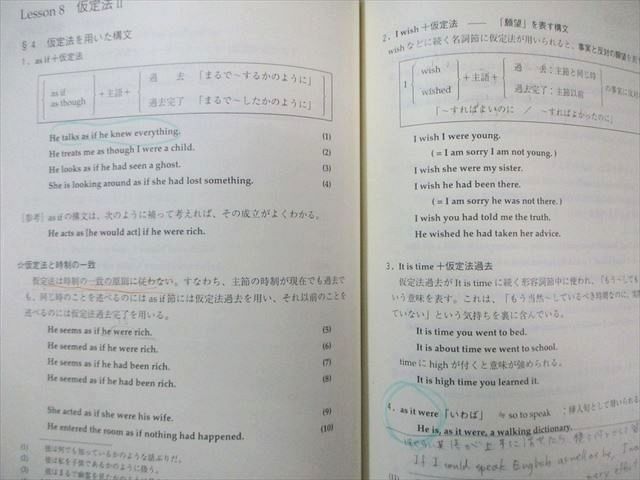 Lesson 8 仮定法 II
§4 仮定法を用いた構文
1. as if + 仮定法
as if
as though
+主語+
過 去 「まるで〜するかのように」
過去完了 「まるで〜したかのように」
He talks as if he knew everything. (1)
He treats me as though I were a child. (2)
He looks as if he had seen a ghost. (3)
She is looking around as if she had lost something. (4)
[参考] as if の構文は、次のように補って考えれば、その成立がよくわかる。
He acts as [he would act] if he were rich.
☆仮定法と時制の一致
仮定法は時制の一致の原則に従わない。すなわち、主節の時制が現在でも過去で
も、同じ時のことを述べるのには as if 節には仮定法過去を用い、それ以前のことを
述べるのには仮定法過去完了を用いる。
He seems as if he were rich. (5)
He seemed as if he were rich. (6)
He seems as if he had been rich. (7)
He seemed as if he had been rich. (8)
She acted as if she were his wife. (9)
He entered the room as if nothing had happened. (10)
(1) 彼は何でも知っているかのような話ぶりだ。
(2) 彼は私を子供であるかのように扱う。
(3) 彼はまるで幽霊を見たかのような
2. I wish + 仮定法 ―― 「願望」を表す構文
wish などに続く名詞節に仮定法が用いられると、事実と反対の願望を表す
I
wish
wished
+主語+
過 去：主節と同じ時
過去完了：主節以前
の事実に反対
「〜すればよいのに / 〜すればよかったのに」
I wish I were young.
( = I am sorry I am not young. )
I wish she were my sister.
I wish he had been there.
( = I am sorry he was not there. )
I wish you had told me the truth.
He wished he had taken her advice.
3. It is time + 仮定法過去
仮定法過去が It is time に続く形容詞節中に使われ、「もう〜して
いう意味を表す。これは、「もう当然〜しているべき時間なのに、実際
ていない」という気持ちを裏に含んでいる。
It is time you went to bed.
It is about time we went to school.
time に high が付くと意味が強められる。
It is high time you learned it.
4. as it were 「いわば」 ≒ so to speak ：挿入句として用いられる
He is, as it were, a walking dictionary.
If I could speak English as well as he, I wo
very